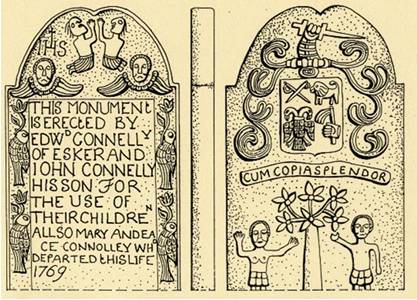 IHS
THIS MONUMENT
IS ERECTED BY
EDWD CONNELLY
OF ESKER AND
IOHN CONNELLY
HIS SON FOR
THE USE OF
THEIR CHILDREN
ALLSO MARY AND EA
CE CONNOLLEY WH
DEPARTED THIS LIFE
1769
CUM COPIA SPLENDOR